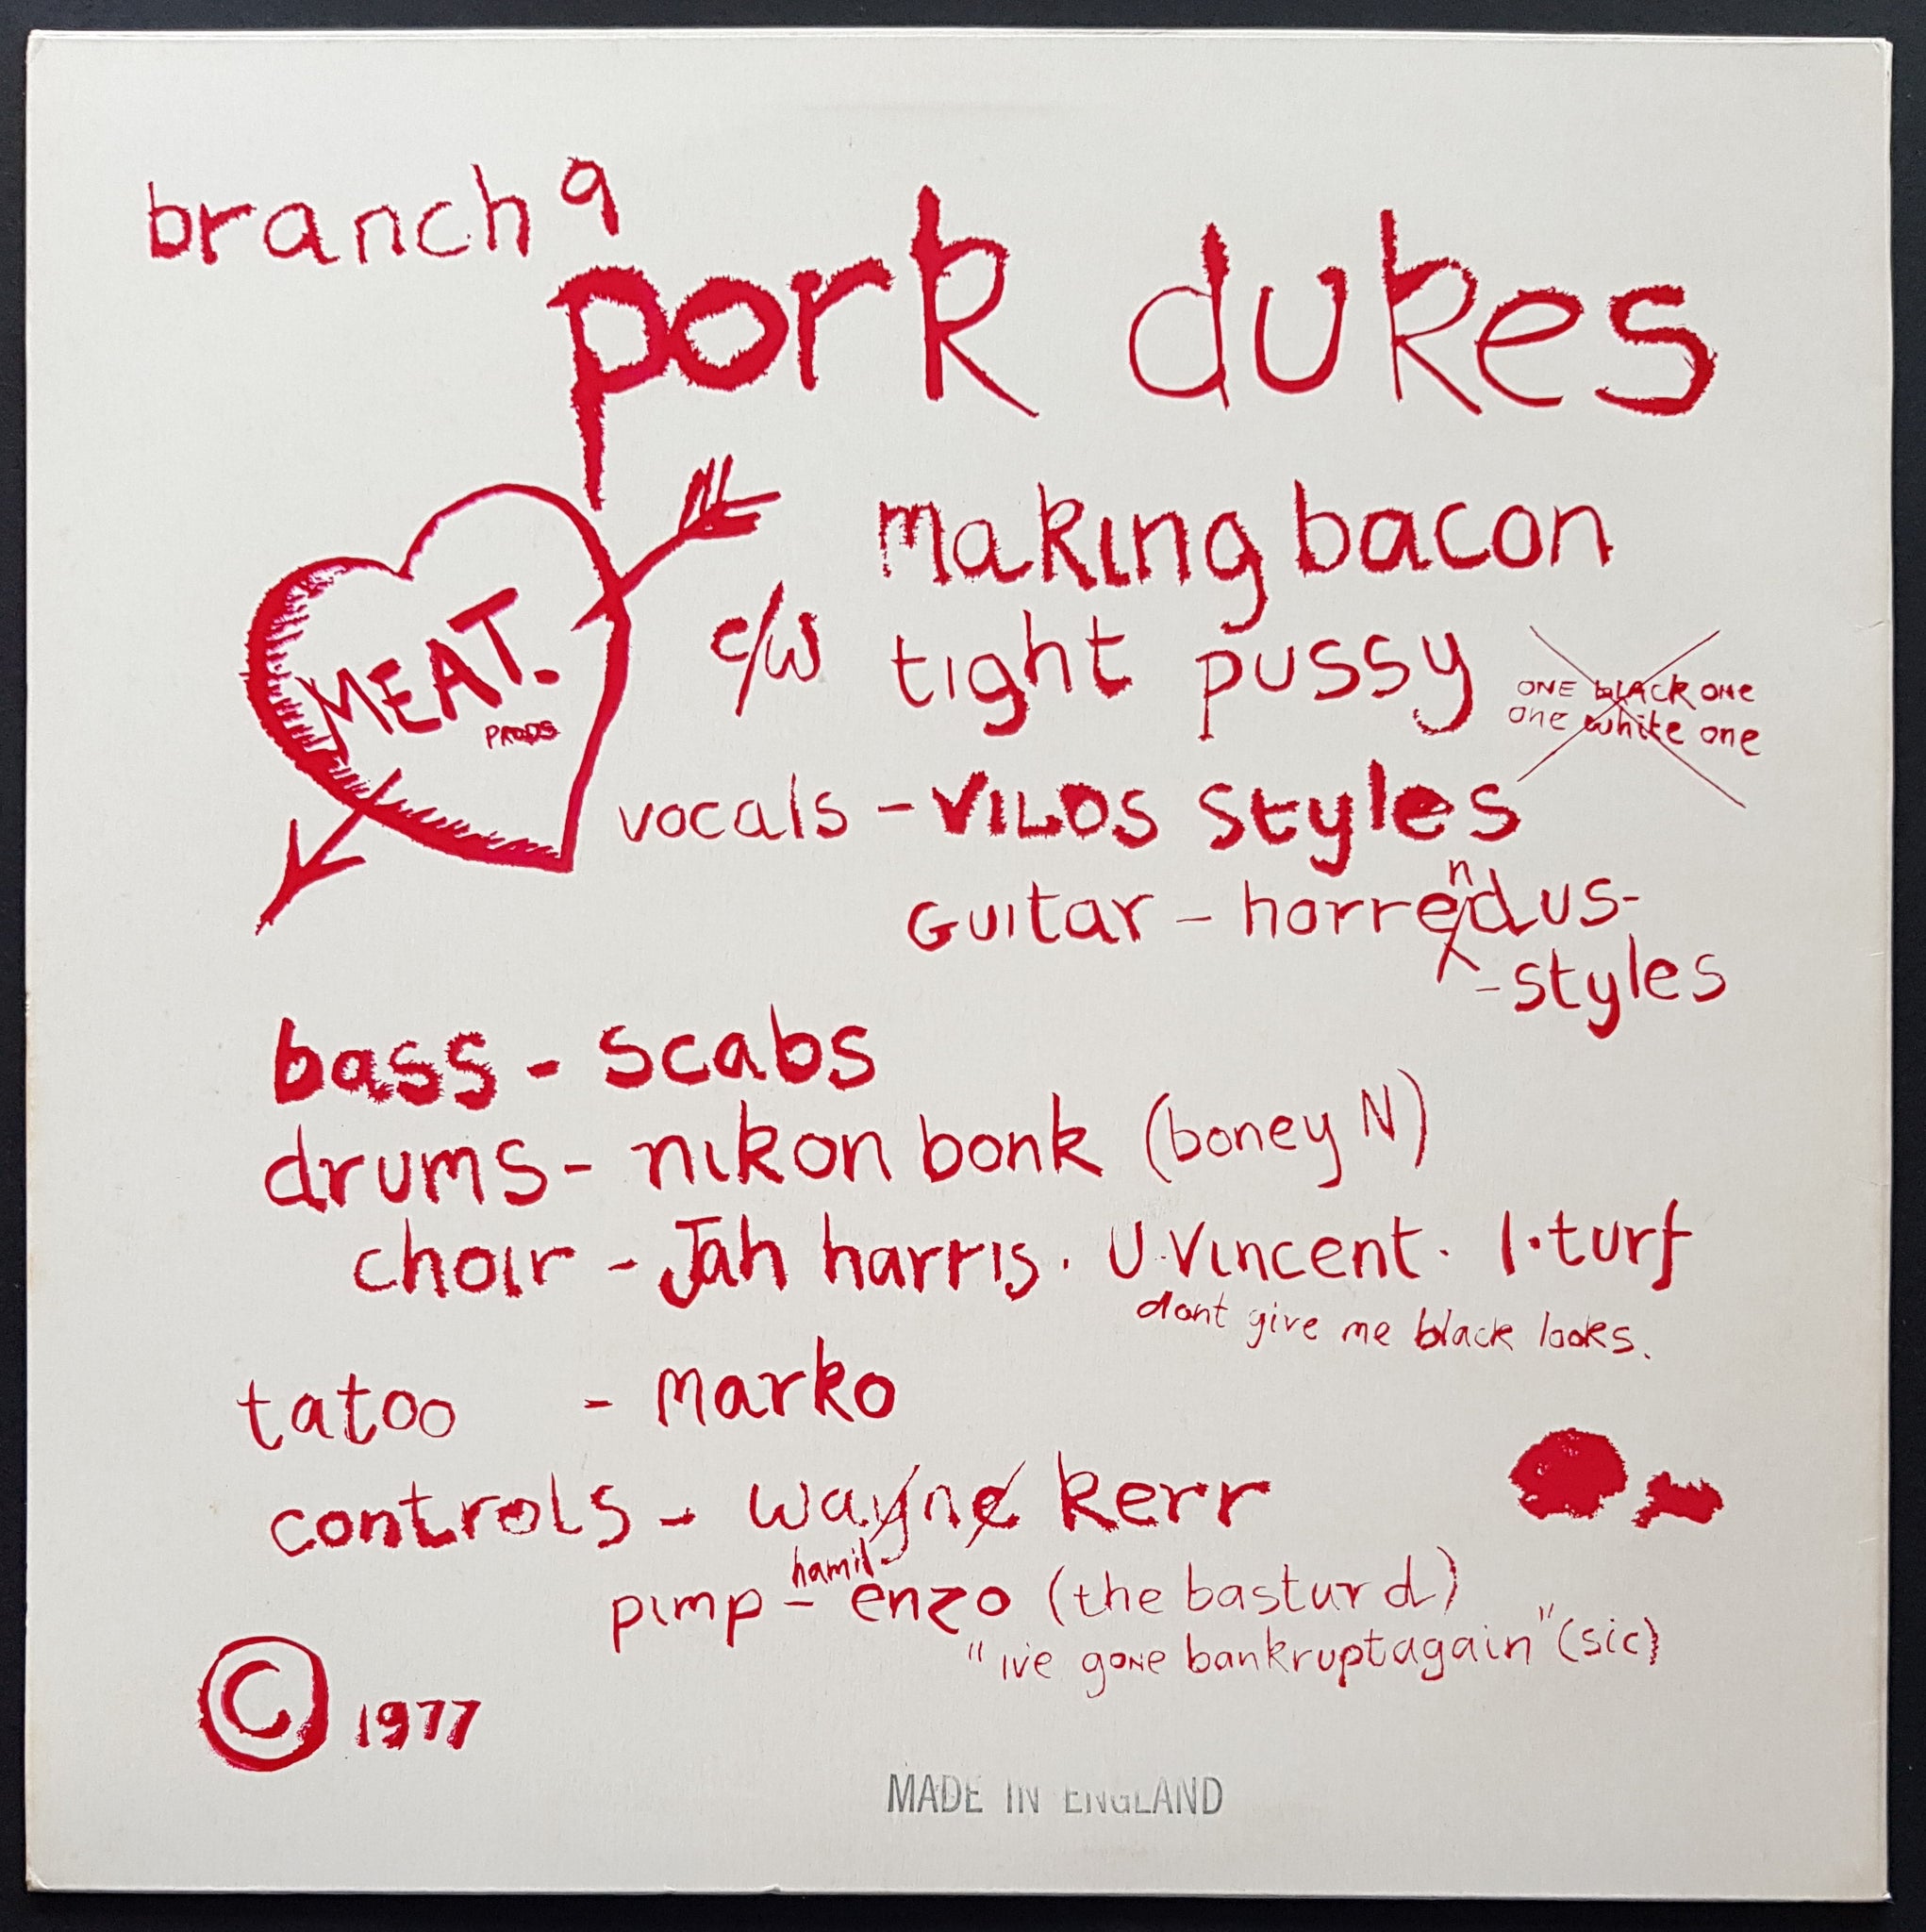 branch 9
pork dukes
MEAT.
PRODS
making bacon
c/w tight pussy
ONE black one
one white one
vocals - VILOS styles
Guitar - horrendus-
-styles
bass - scabs
drums - nikon bonk (boney N)
choir - Jah harris. U.Vincent. I.turf
dont give me black looks.
tatoo - Marko
controls - wayne kerr
pimp - hamil enzo (the basturd)
"ive gone bankruptagain" (sic)
© 1977
MADE IN ENGLAND